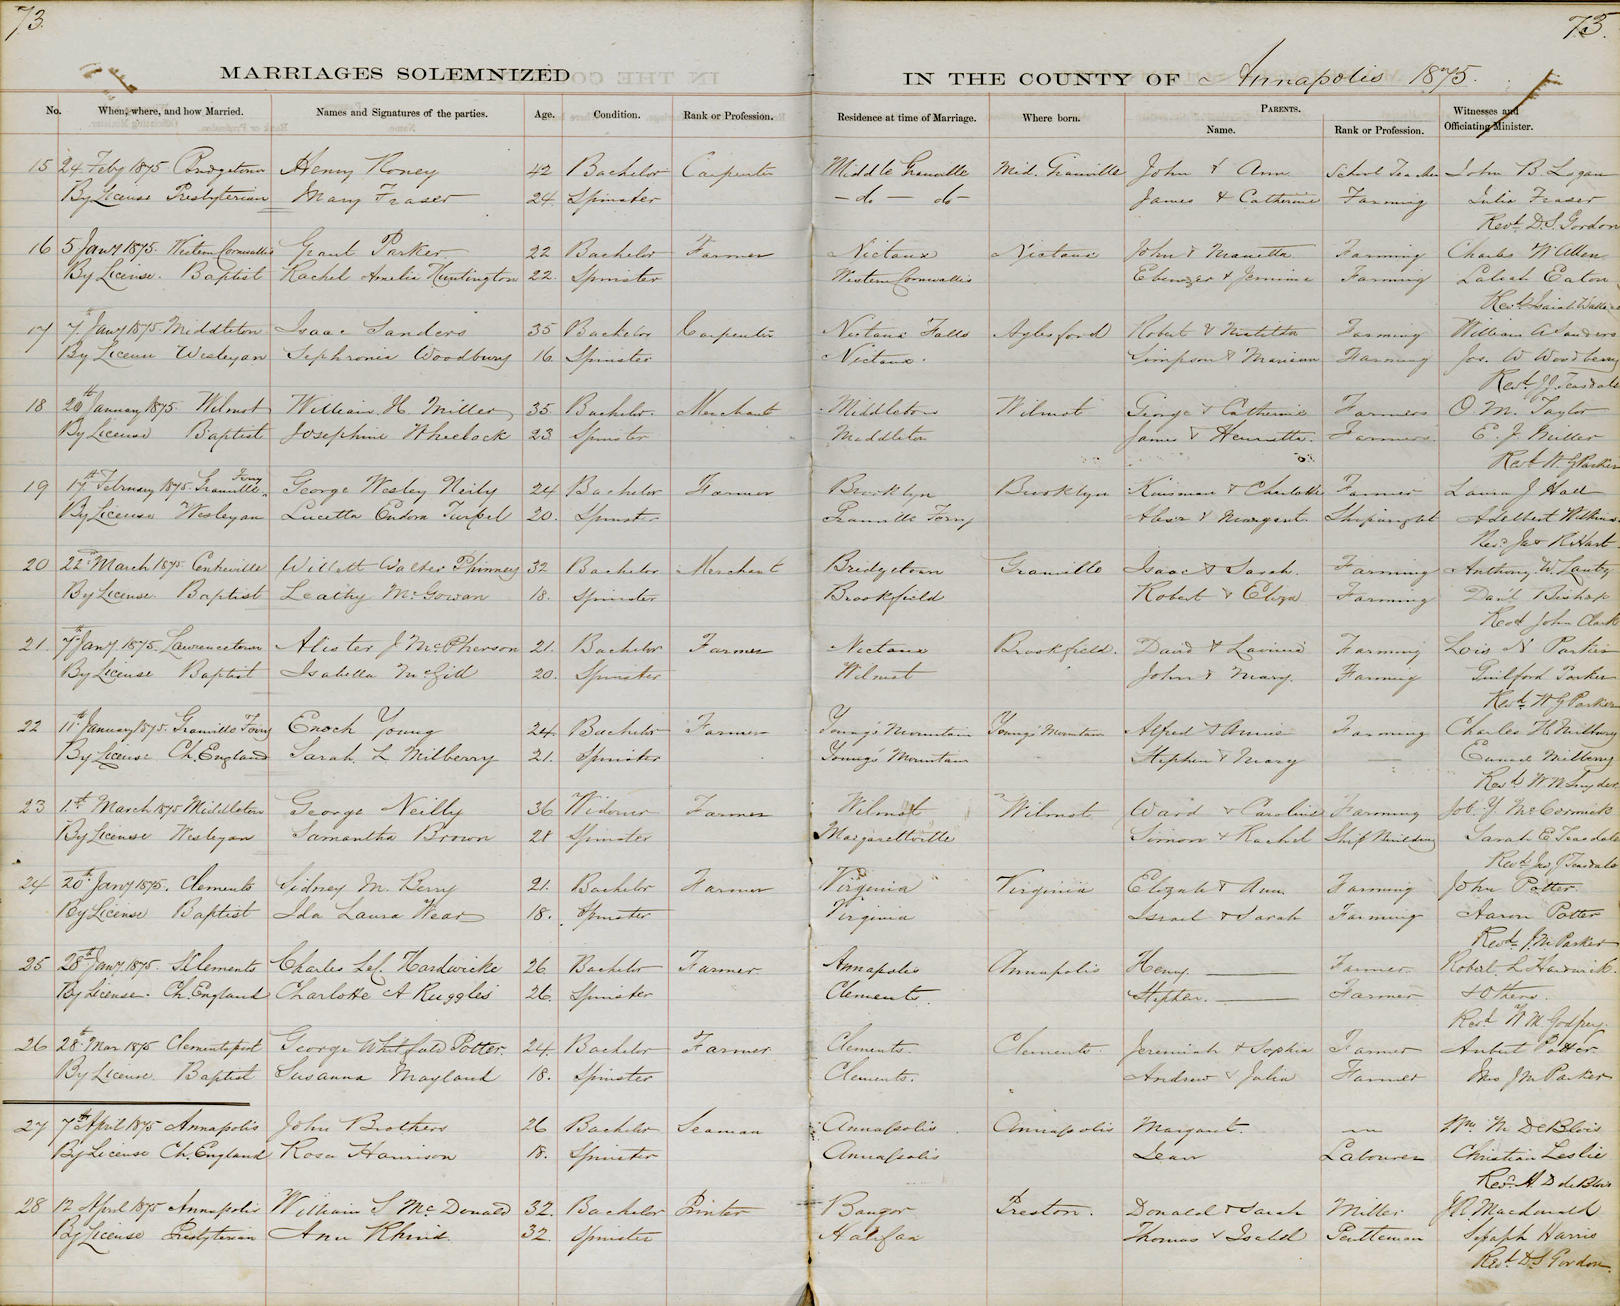 73.
73.
MARRIAGES SOLEMNIZED
IN THE COUNTY OF Annapolis 1875.
No. When, where, and how Married. Names and Signatures of the parties. Age. Condition. Rank or Profession. Residence at time of Marriage. Where born. PARENTS. Name. Rank or Profession. Witnesses and Officiating Minister.
15 24 Feby 1875 Bridgetown Henry Roney 42 Bachelor Carpenter Middle Granville Mid. Granville John & Ann School Teacher John B. Logan
By License Presbyterian Mary Fraser 24 Spinster - do - do - James & Catherine Farming Julia Fraser
Revd. D.S. Gordon
16 5 Jany 1875. Western Cornwallis Grant Parker 22 Bachelor Farmer Nictaux Nictaux John & Manetta Farming Charles W Allen
By License. Baptist Rachel Amelia Huntington 22. Spinster Western Cornwallis Ebenezer & Jemima Farming Eaton
Revd. Isaiah Wallace
17 7th Jany 1875. Middleton Isaac Sanders 35 Bachelor Carpenter Nictaux Falls Aylesford Robert & Matilda Farming William A Sanders
By License Wesleyan Sephronia Woodbury 16. Spinster Nictaux. Simpson & Mariam Farming Jos. W Woodbery
Revd. J.J. Teasdale
18 20th January 1875. Wilmot William H. Miller 35. Bachelor. Merchant Middleton Wilmot George & Catherine Farmers O. M. Taylor
By License Baptist Josephine Wheelock 23 Spinster Middleton James & Henrietta. Farmers E. J. Miller
Revd. W. G Parker
19 17th February 1875. Granville Ferry George Wesley Neily 24 Bachelor Farmer Brooklyn Brooklyn Kinsman & Charlotte Farmer Laura J Hall
By License Wesleyan Lucetta Eudora Turpel 20. Spinster Granville Ferry Abner & Margaret. Shipwright Adelbert Wilkins
Revd. Jas R. Hart
20 22d March 1875 Centreville Willett Walter Phinney 32 Bachelor Merchant Bridgetown Granville Isaac & Sarah. Farming Anthony W. Lantz
By License. Baptist Leathy McGowan 18. Spinster Brookfield Robert & Eliza Farming Danl
Revd John Clark
21. 7th Jany. 1875. Lawrencetown Alister J McPherson 21. Bachelor Farmer Nictaux Brookfield. David & Lavinia Farming Lois N Parker
By License Baptist Isabella McGill 20. Spinster Wilmot John & Mary. Farming Guilford Parker
Revd. W G Parker
22 11th January 1875. Granville Ferry Enoch Young 24. Bachelor Farmer Young's Mountain Young's Mountain Alfred & Annie Farming Charles H Milbury
By License Ch. England Sarah. L Milberry 21. Spinster Young's Mountain Stephen & Mary — Milberry
Revd. W M Snyder
23 1st March 1875 Middleton George Neilly 36 Widower Farmer Wilmot Wilmot Ward & Caroline Farming Job. Y. McCormick
By License Wesleyan Samantha Brown 28 Spinster Margarettville Simon & Rachel Ship Building Sarah E Teasdale
Revd. Jno J Teasdale
24 20th Jany 1875. Clements Sidney M. Berry 21. Bachelor Farmer Virginia Virginia & Ann. Farming John Potter
By License Baptist Ida Laura Wear 18. Spinster Virginia Israel & Sarah Farming Aaron Potter
Revd. J.M. Parker
25 28th Jany. 1875. Clements Charles Hardwicke 26 Bachelor Farmer Annapolis Annapolis Henry — Farmer Robert. L Hardwick.
By License. Ch. England Charlotte A Ruggles 26. Spinster Clements. Stephen. — Farmer & Others.
Revd. W M Godfrey.
26 28th Mar 1875 Clementsport George Whitfield Potter. 24. Bachelor Farmer Clements. Clements. Jeremiah & Sophia Farmer Potter
By License. Baptist Susanna Mayland 18. Spinster Clements. Andrew & Julia Farmer Mrs J M Parker
27 7th April 1875 Annapolis John Brothers 26 Bachelor Seaman Annapolis Annapolis Margaret. — Wm. M. DeBlois
By License Ch. England Rosa Harrison 18. Spinster Annapolis Labourer Christian Leslie
Revd. H D deBlois
28 12 April 1875 Annapolis William S McDonald 32. Bachelor Printer Bangor Preston. Donald & Sarah Miller J.R. Macdonald
By License Presbyterian Ann Rhind. 32. Spinster Halifax Thomas & Isabel Gentleman Joseph Harris
Revd. D.S Gordon.